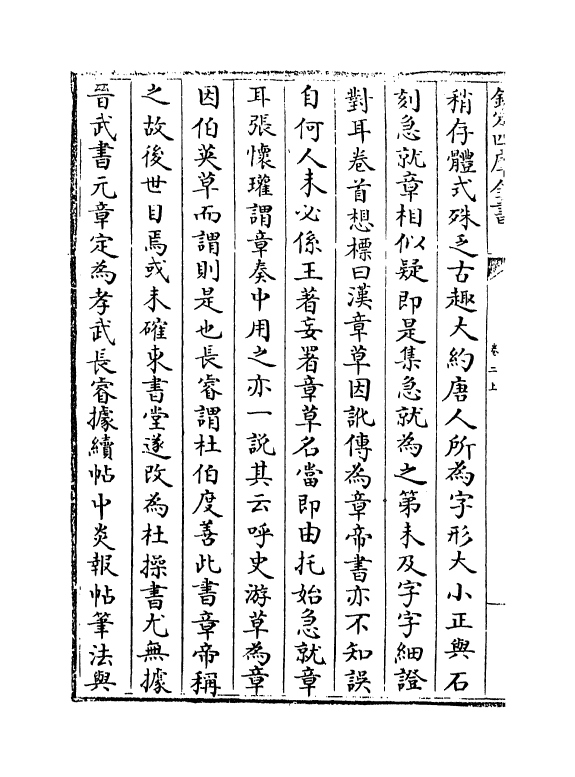 欽定四庫全書
卷二上
稍存體式殊乏古趣大約唐人所為字形大小正與石
刻急就章相似疑即是集急就為之第未及字字細證
對耳卷首想標曰漢章草因訛傳為章帝書亦不知誤
自何人未必係王著妄署章草名當即由托始急就章
耳張懷瓘謂章奏中用之亦一說其云呼史游草為章
因伯英草而謂則是也長睿謂杜伯度善此書章帝稱
之故後世目焉或未確東書堂遂改為杜操書尤無據
晉武書元章定為孝武長睿據續帖中炎報帖筆法與